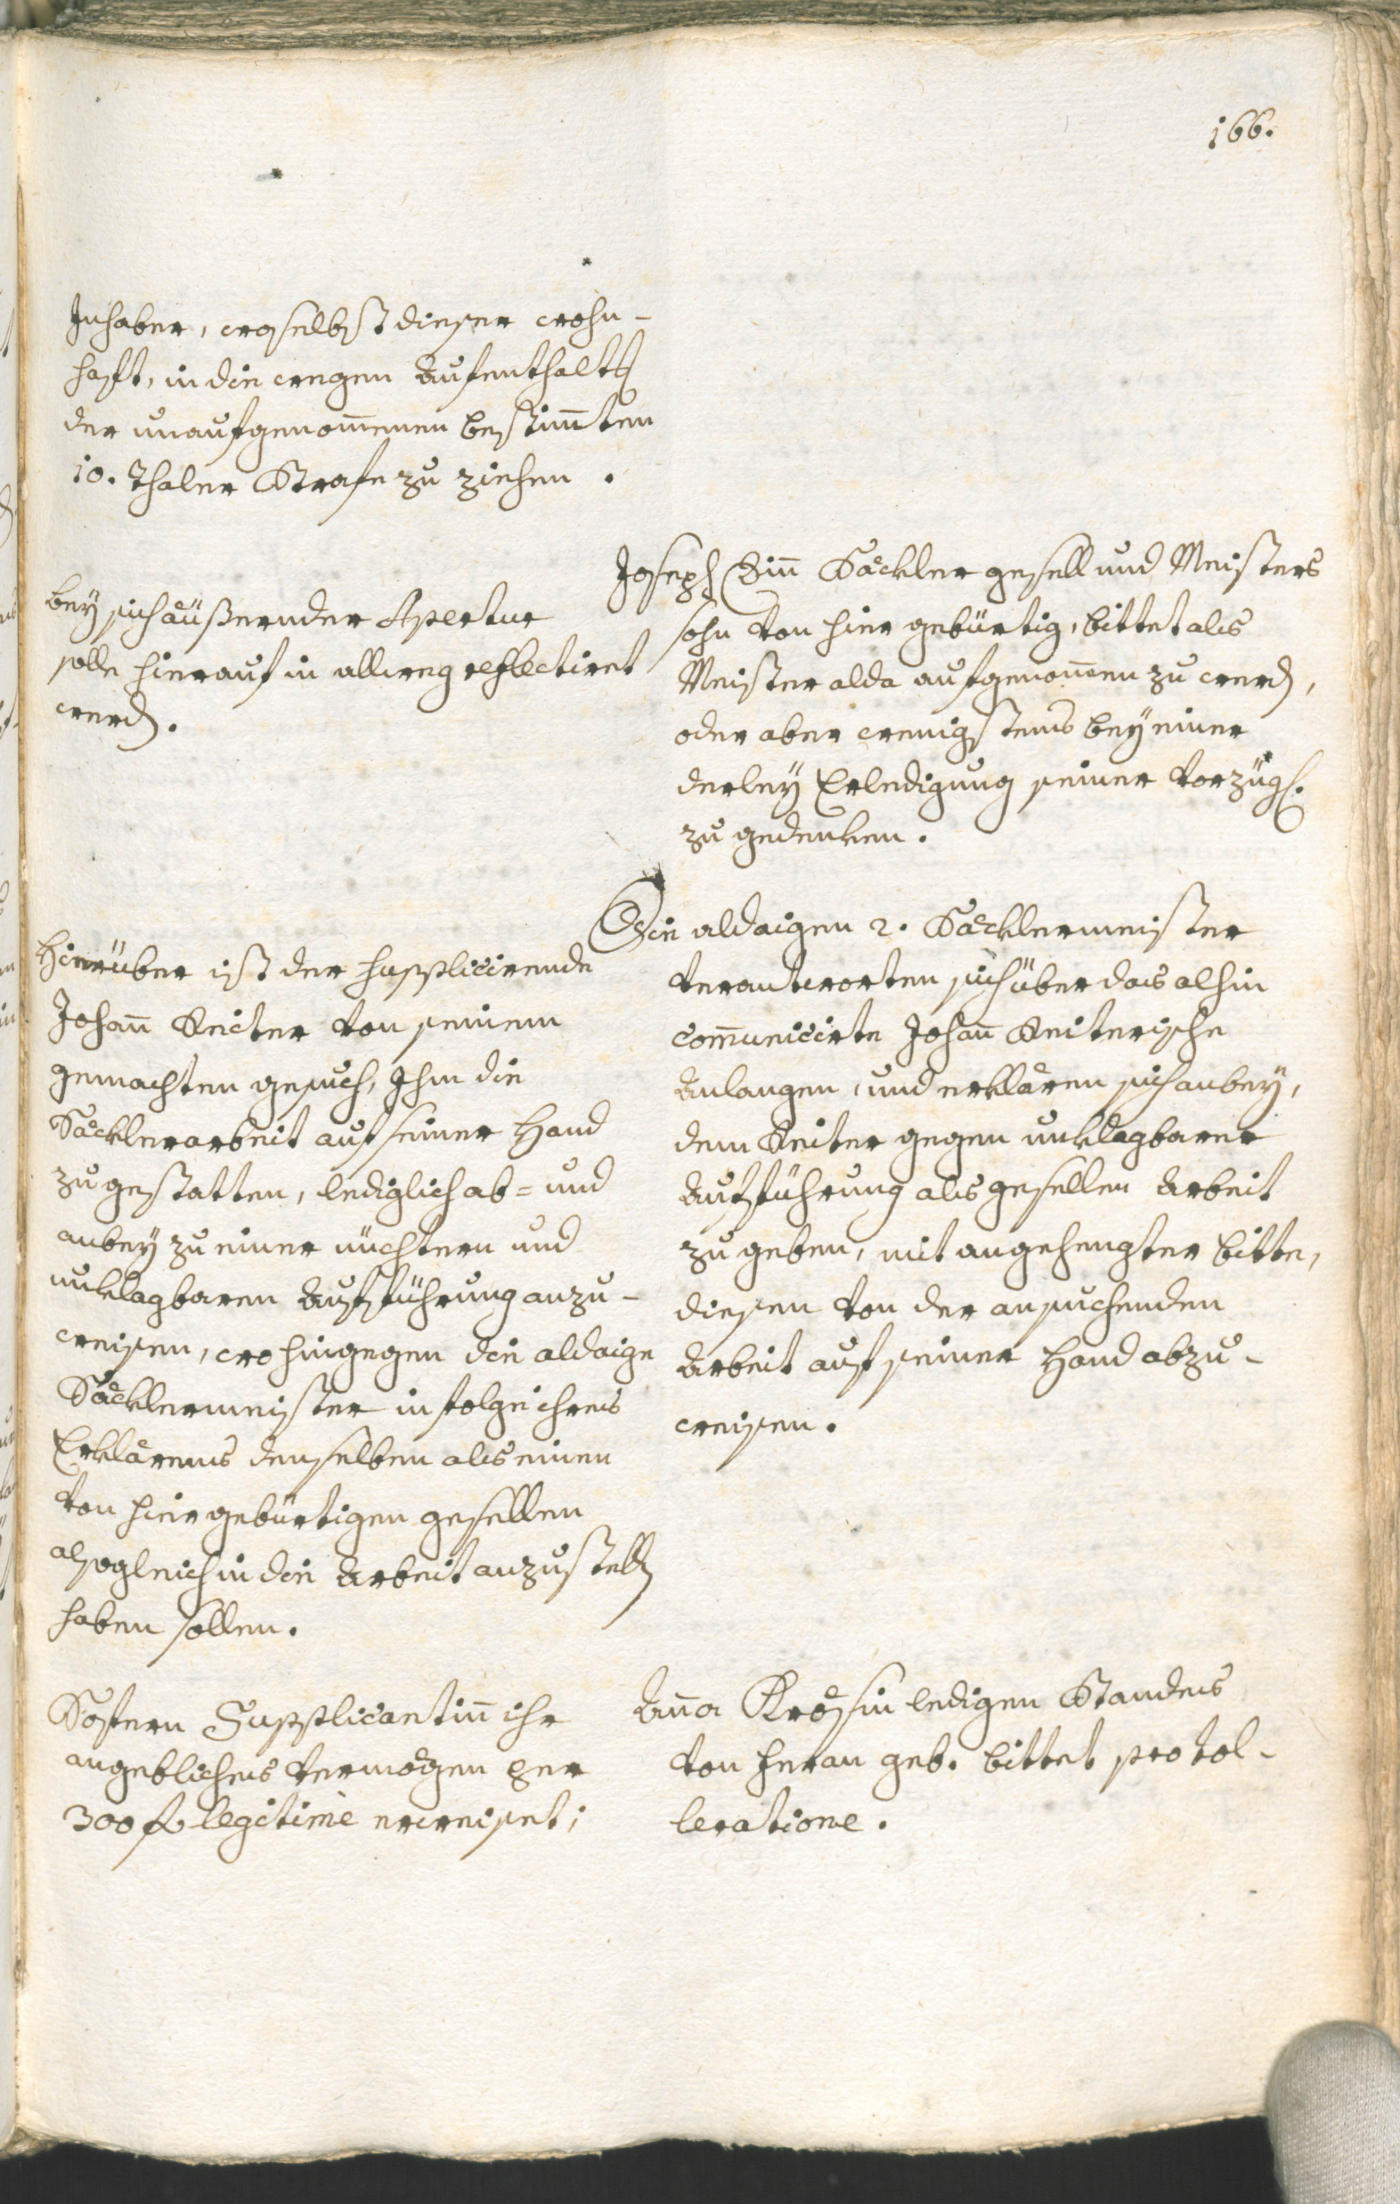 166.
Inhaber, woselbst dieser wohn-
haft, in die wegen Aufenthalts
der unaufgenom̅enen bestim̅ten
10. Thaler Strafe zu ziehen.
Joseph Säckler gesell und Meisters
sohn von hier gebürtig, bittet als
Meister alda aufgenom̅en zu werd,
oder aber wenigstens bey einer
derley Erledigung seiner vorzügl.
zu gedenken.
bey sich äüßernder Apertur
solle hierauf in allweg reflectiret
werd.
Die aldaigen 2. Säcklermeister
verantworten sich über das alhin
com̅unicirte Johan̅ Reiterische
Anlangen, und erklären sich anbey,
dem Reiter gegen unklagbarer
Aufführung als gesellen Arbeit
zu geben, mit angehengter bitte,
diesen von der ansuchenden
Arbeit auf seiner Hand abzu-
weisen.
Hierüber ist der supplicirende
Johan̅ Reiter von seinem
gemachten gesuch, Ihm die
Säcklerarbeit auf seiner Hand
zu gestatten, lediglich ab- und
anbey zu einer nüchtern und
unklagbaren Aufführung anzu-
weisen, wohingegen die aldaige
Säcklermeister in folge ihres
Erklärens denselben als einen
von hier gebürtigen gesellen
alsogleich in die Arbeit anzustelln
haben sollen.
Anna Krösin ledigen Standes
von geb. bittet pro tol-
leratione.
Sofern Supplicantin̅ ihr
angebliches vermögen per
300 f legitime erweiset;